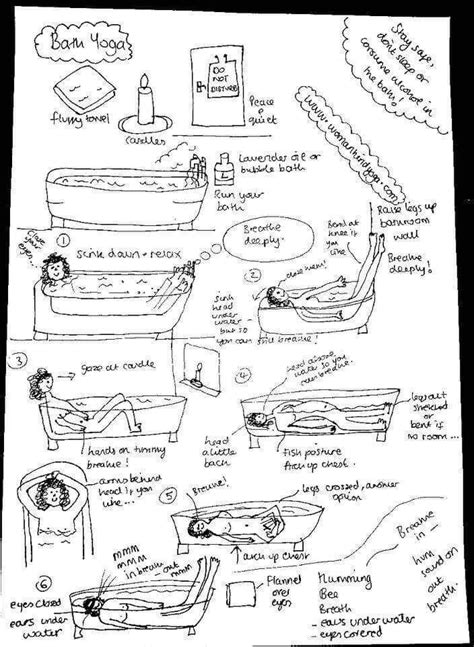 Bath Yoga
fluffy towel
candles
DO
NOT
DISTURB
Peace
& quiet
Stay safe,
don't sleep or
consume alcohol in
the bath!
Lavender oil or
bubble bath
L
Run your
bath
close
your
eyes...
1
sink down + relax
Breathe
deeply.
2
close them!
Bend at
knee if
you
like
Raise legs up
bathroom
wall
Breathe
deeply!
sink
head
under
water
but so
you can still breathe!
3
gaze at candle
hands on tummy
breathe!
4
head above
water so you
can breathe.
head
a little
back
fish posture
Arch up chest.
legs out
stretched
or bent if
no room...
arms behind
head if you
like...
5
Breathe!
legs crossed, another
option
arch up chest
6
mmm
mmm
in breath
out
mmm
eyes closed
ears under
water
Flannel
over
eyes
Humming
Bee
Breath
- ears under water
- eyes covered
Breathe
in -
hum
sound on
out
breath.